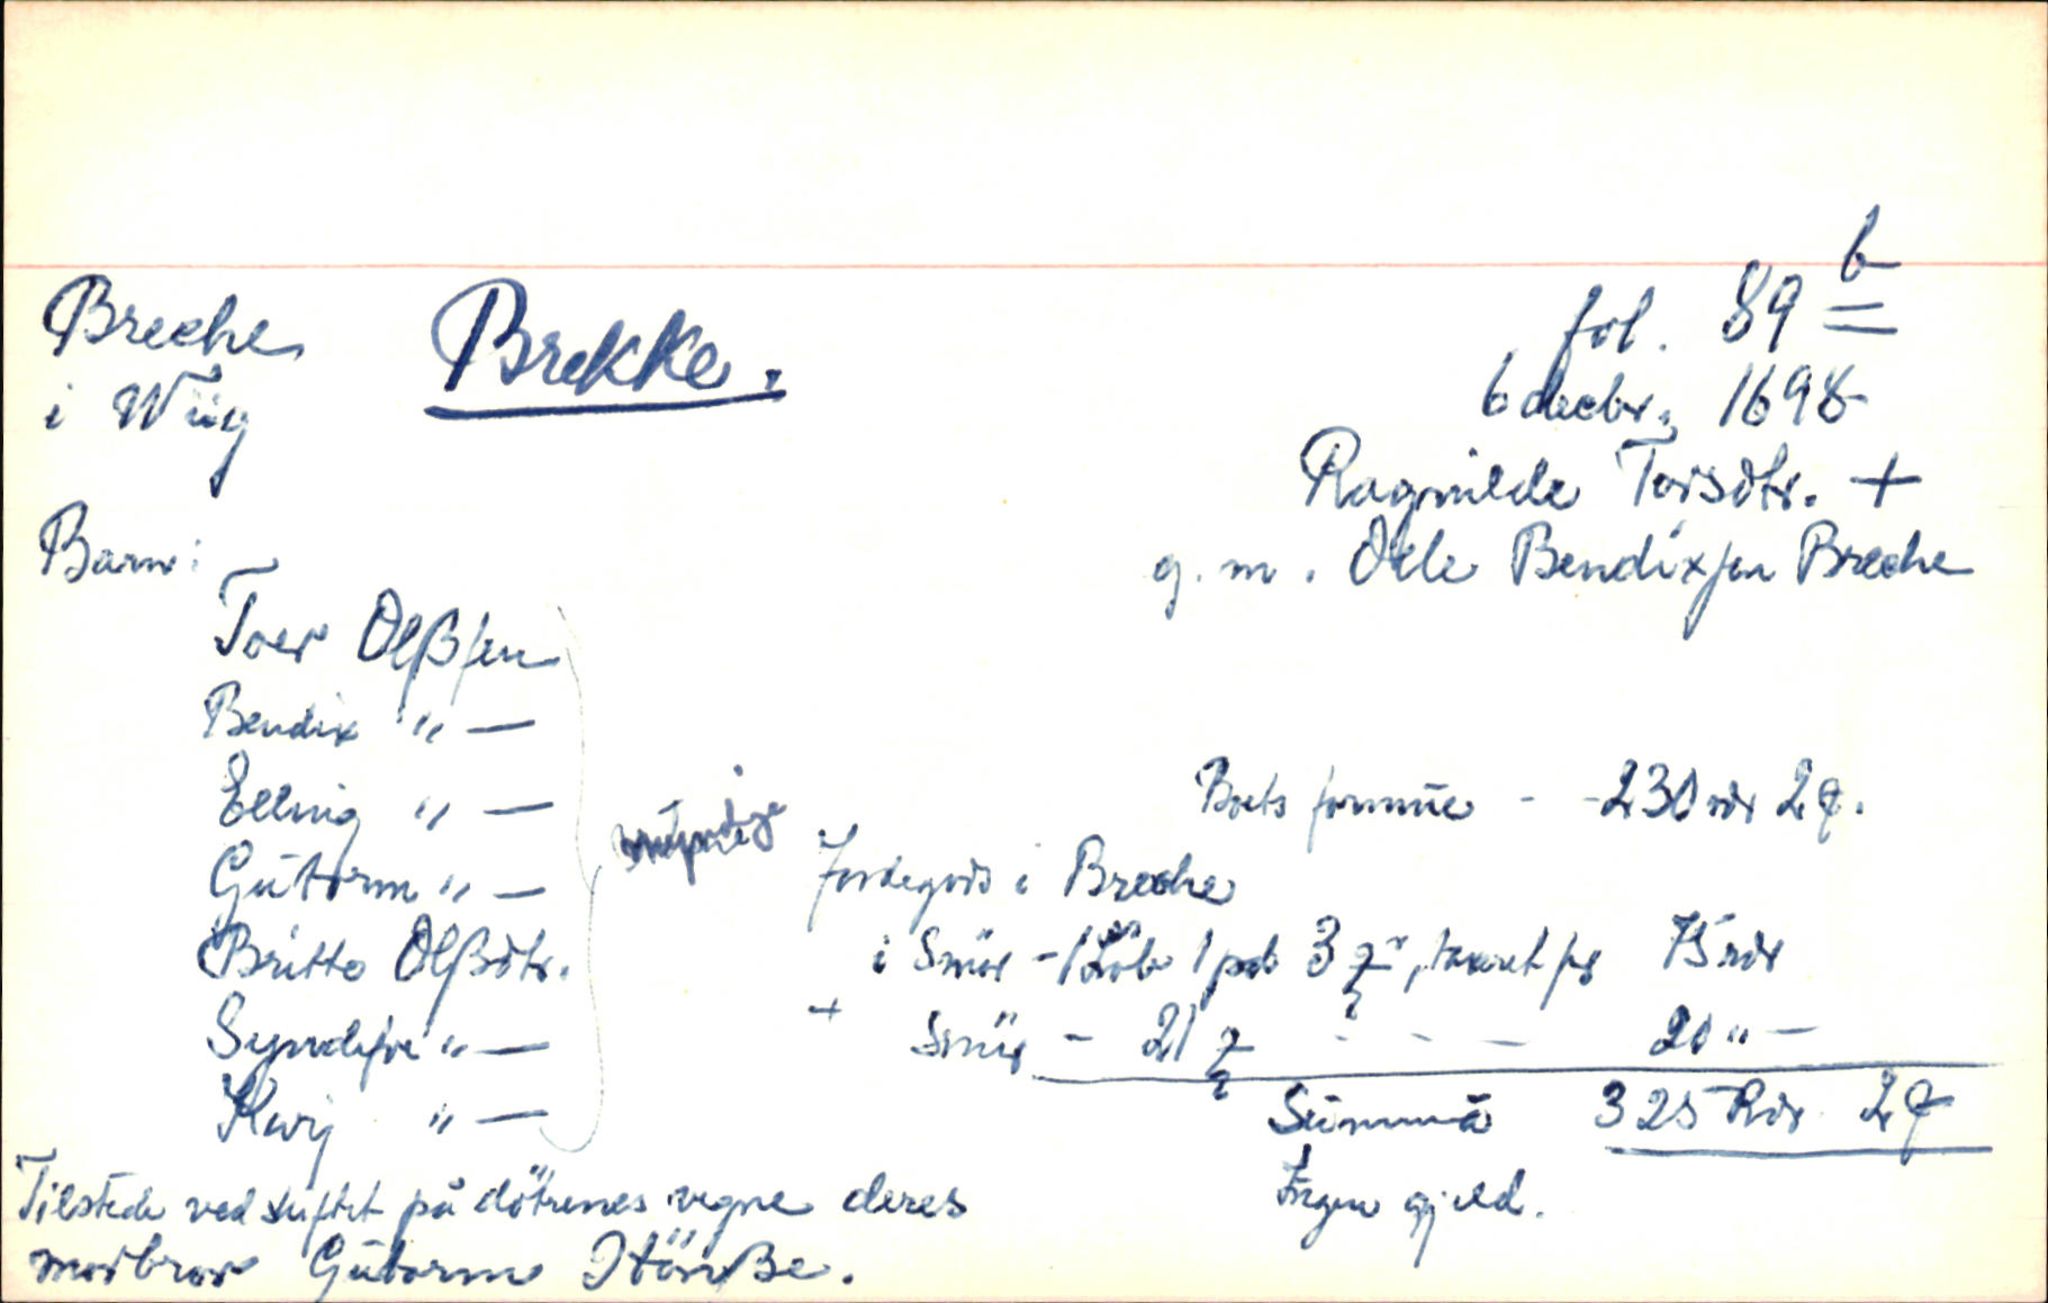 Breche Brekke. fol. 89 b
i Wiig 6 decbr. 1698
Ragnilde Torsdtr. +
g.m. Ole Bendixsen Breche
Barn:
Toer Olßsen
Bendix " —
Elling " —
Gutorm " —
Britto Olßdtr.
Syndifve " —
Kari " —
umyndige
Boets formue - - 230 rdr 2 ꝗ.
Jordegods i Breche
i Smör - 1 Löb 1 pd 3 , taxeret for 75 rdr
+ Smör - 21 - - - 20 " —
Summa 325 Rdr 2 ꝗ
Ingen gjeld.
Tilstede ved skiftet på döttrenes vegne deres
morbror Gutorm